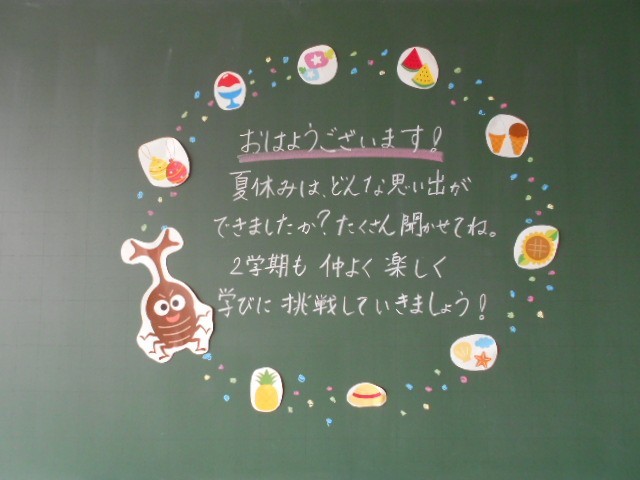 おはようございます!
夏休みは、どんな思い出が
できましたか?たくさん聞かせてね。
2学期も仲よく楽しく
学びに挑戦していきましょう!